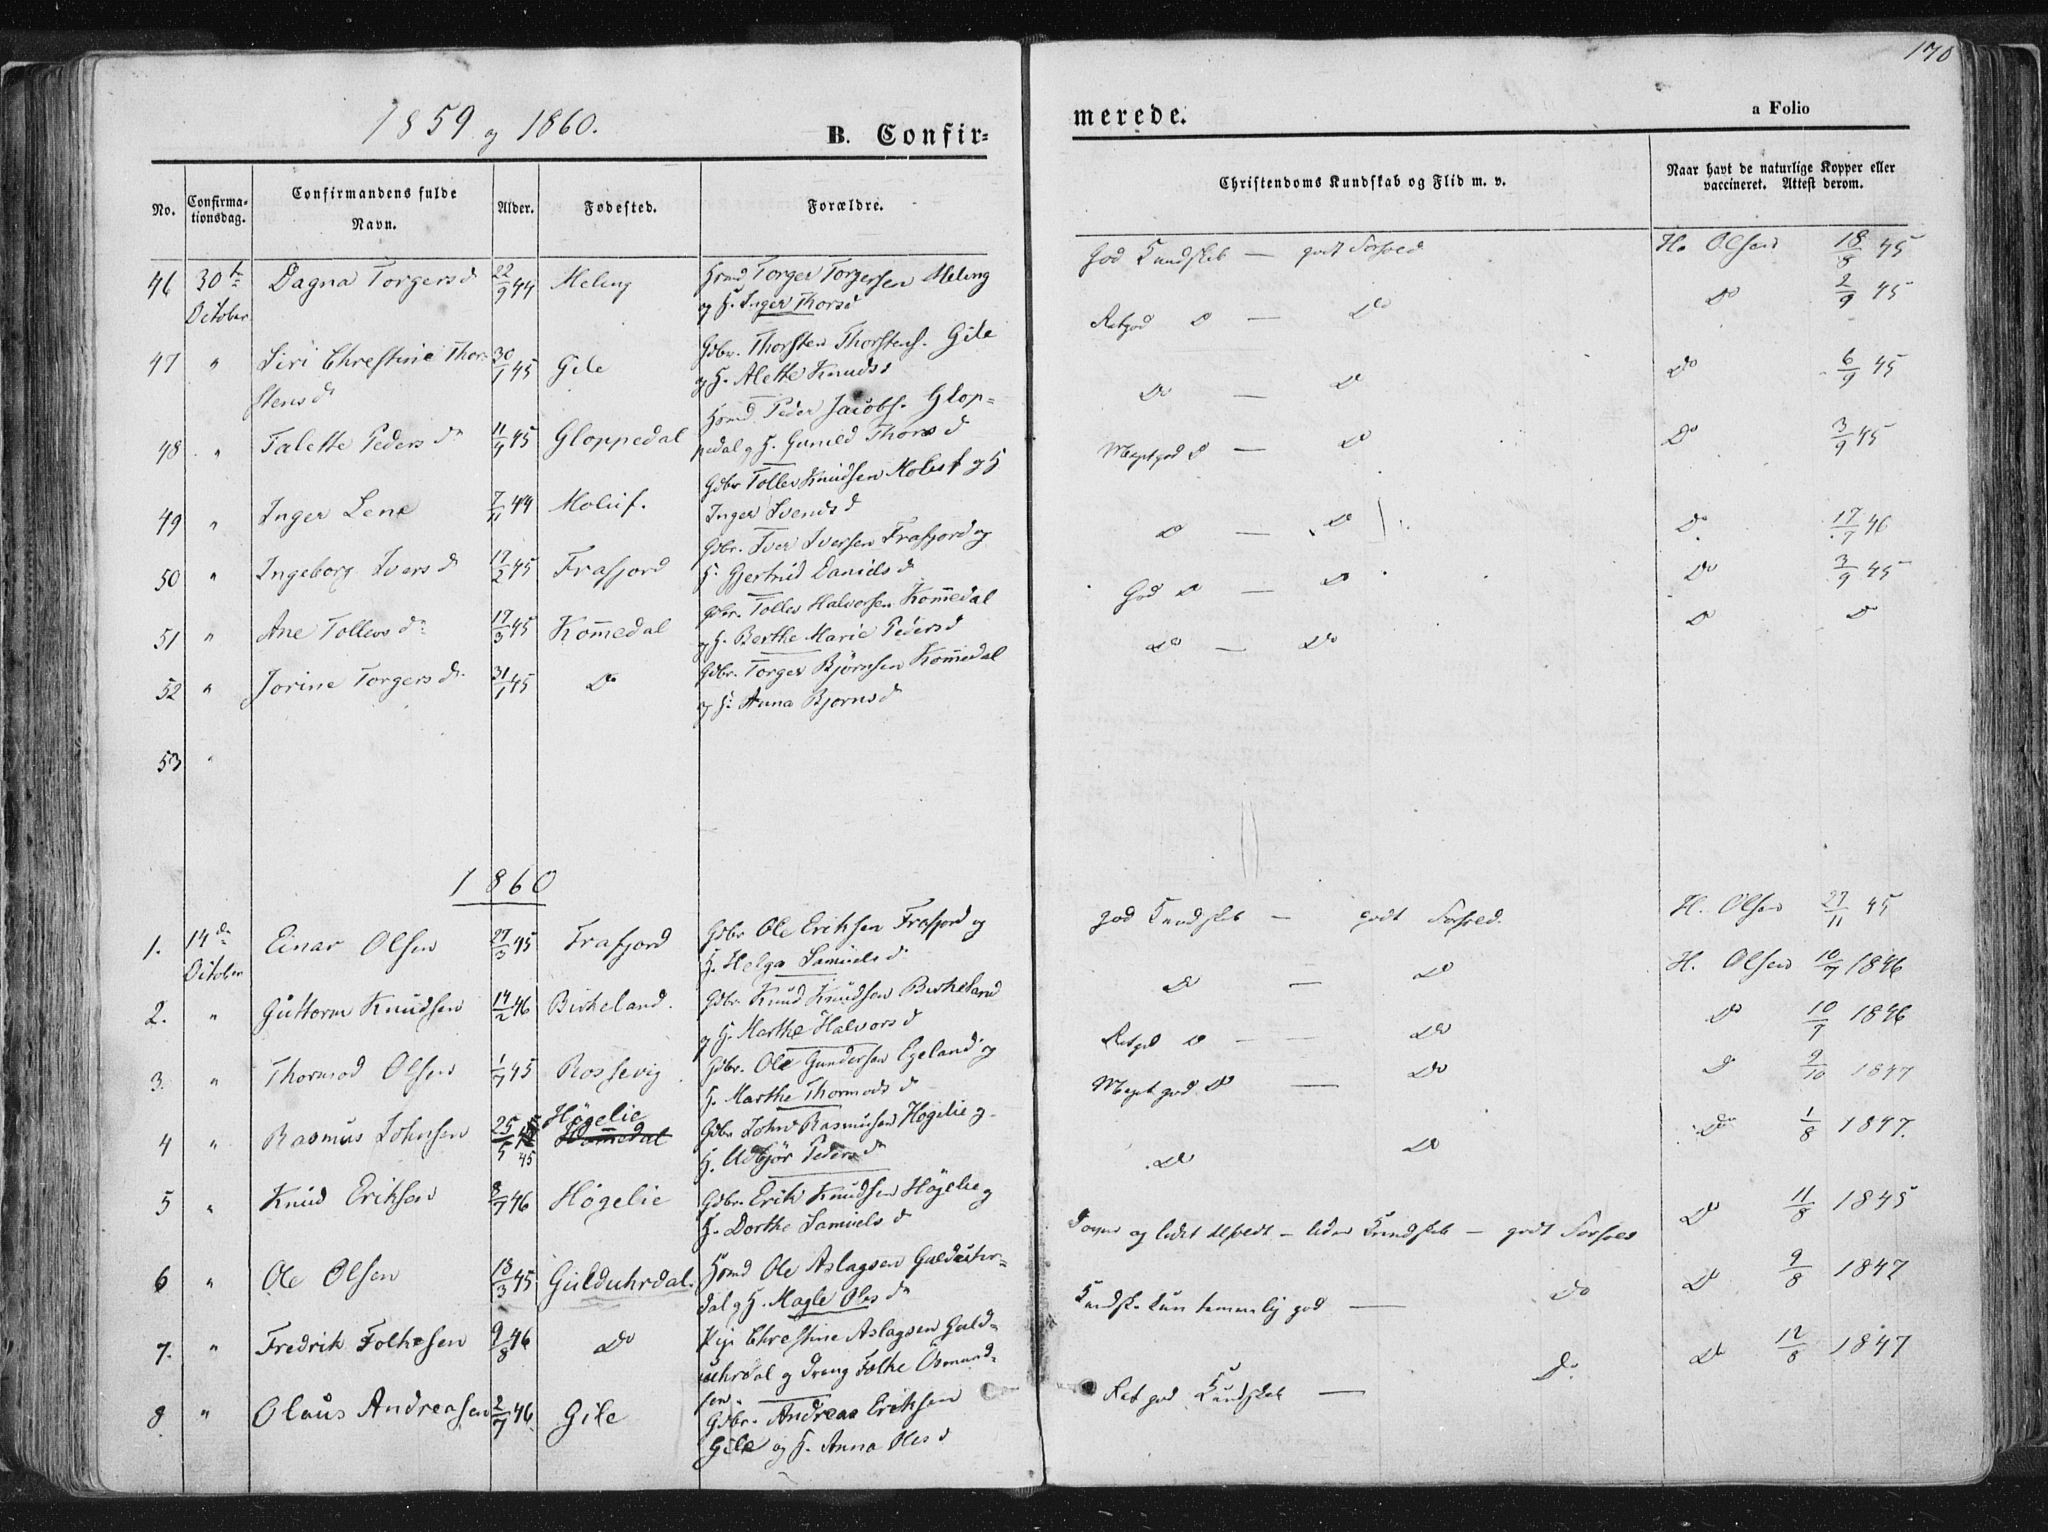 170
1859 og 1860.
B. Confir=
merede.
a Folio
No.
Confirma-
tionsdag.
Confirmandens fulde
Navn.
Alder.
Fødested.
Forældre.
Christendoms Kundskab og Flid m. v.
Naar havt de naturlige Kopper eller
vaccineret. Attest derom.
46 30te October Dagna Torgersd 22/9 44 Meling
Torger Torgersen Meling
og H. Inger Thorsd
God Kundskab — godt Forhold
H. Olsen 18/8 45
47 " Siri Chrestine Thor-
stensdr 30/1 45 Gile
Gdbr. Thorsten Thorstens. Gile
og H. Alette Knudsd
Retgod Do — Do
Do 2/9 45
48 " Talette Pedersdr 11/4 45 Gloppedal
Peder Jacobs. Glop-
pedal og H. Gunild Thorsd
Do — Do
Do 6/9 45
49 " Inger Lene 7/11 44 Moluf.
Gdbr Tolles Knudsen Molaf og H
Inger Svendsd
Meget god Do — Do
Do 3/9 45
50 " Ingeborg Iversdr 17/2 45 Frafjord
Gdbr. Iver Iversen Frafjord og
H. Gjertrud Danielsd
Do — Do
Do 17/7 46
51 " Ane Tollevsdr 17/3 45 Kommedal
Gdbr. Tolles Halvorsen Kommedal
og H. Berthe Marie Pedersd
God Do — Do
Do 3/9 45
52 " Jorine Torgersdr. 31/1 45 Do
Gdbr. Torger Bjørnsen Kommedal
og H. Anna Bjornsd
Do — Do
Do Do
53 "
1860
1. 14de October Einar Olsen 27/3 45 Frafjord
Gdbr Ole Eriksen Frafjord og
H. Helga Samuelsd
god Kundskab — godt Forhold.
H. Olsen 27/11 45
2. " Guttorm Knudsen 14/2 46 Birkeland.
Gdbr Knud Knudsen Birkeland
og H. Marthe Halvorsd
Do — Do
H. Olsen 10/7 1846
3. " Thormod Olsen 1/7 45 Rossevig
Gdbr. Ole Gundersen Egeland og
H. Marthe Thormodsd
Retgod Do — — Do
Do 10/9 1846
4 " Rasmus Johnsen 25/5 45 Högelie
Gdbr John Rasmusen Hogelie og
H. Udbjør Pedersd
Meget god Do — Do
Do 9/10 1847
5 " Knud Eriksen 8/7 46 Högelie
Gdbr. Erik Knudsen Højelie og
H. Dorthe Samuelsd
Do Do
Do 1/8 1847.
6 " Ole Olsen 13/3 45 Gulduhrdal.
Ole Aslagsen Gulduhr-
dal og H. Magle Olesdr
og lidet — liden Kundskab — godt Forhold
Do 11/8 1845
7. " Fredrik Folkesen 9/8 46 Do
Pige Chrestine Aslagsen Guld-
uhrdal og Dreng Folke Osmund-
sen.
Kundsk. kun temmelig god — Do
Do 9/8 1847
8 " Olaus Andreasen 2/7 46. Gile
Gdbr. Andreas Eriksen
Gile og H. Anna Olesd
Ret god Kundskab — Do.
Do 12/8 1847